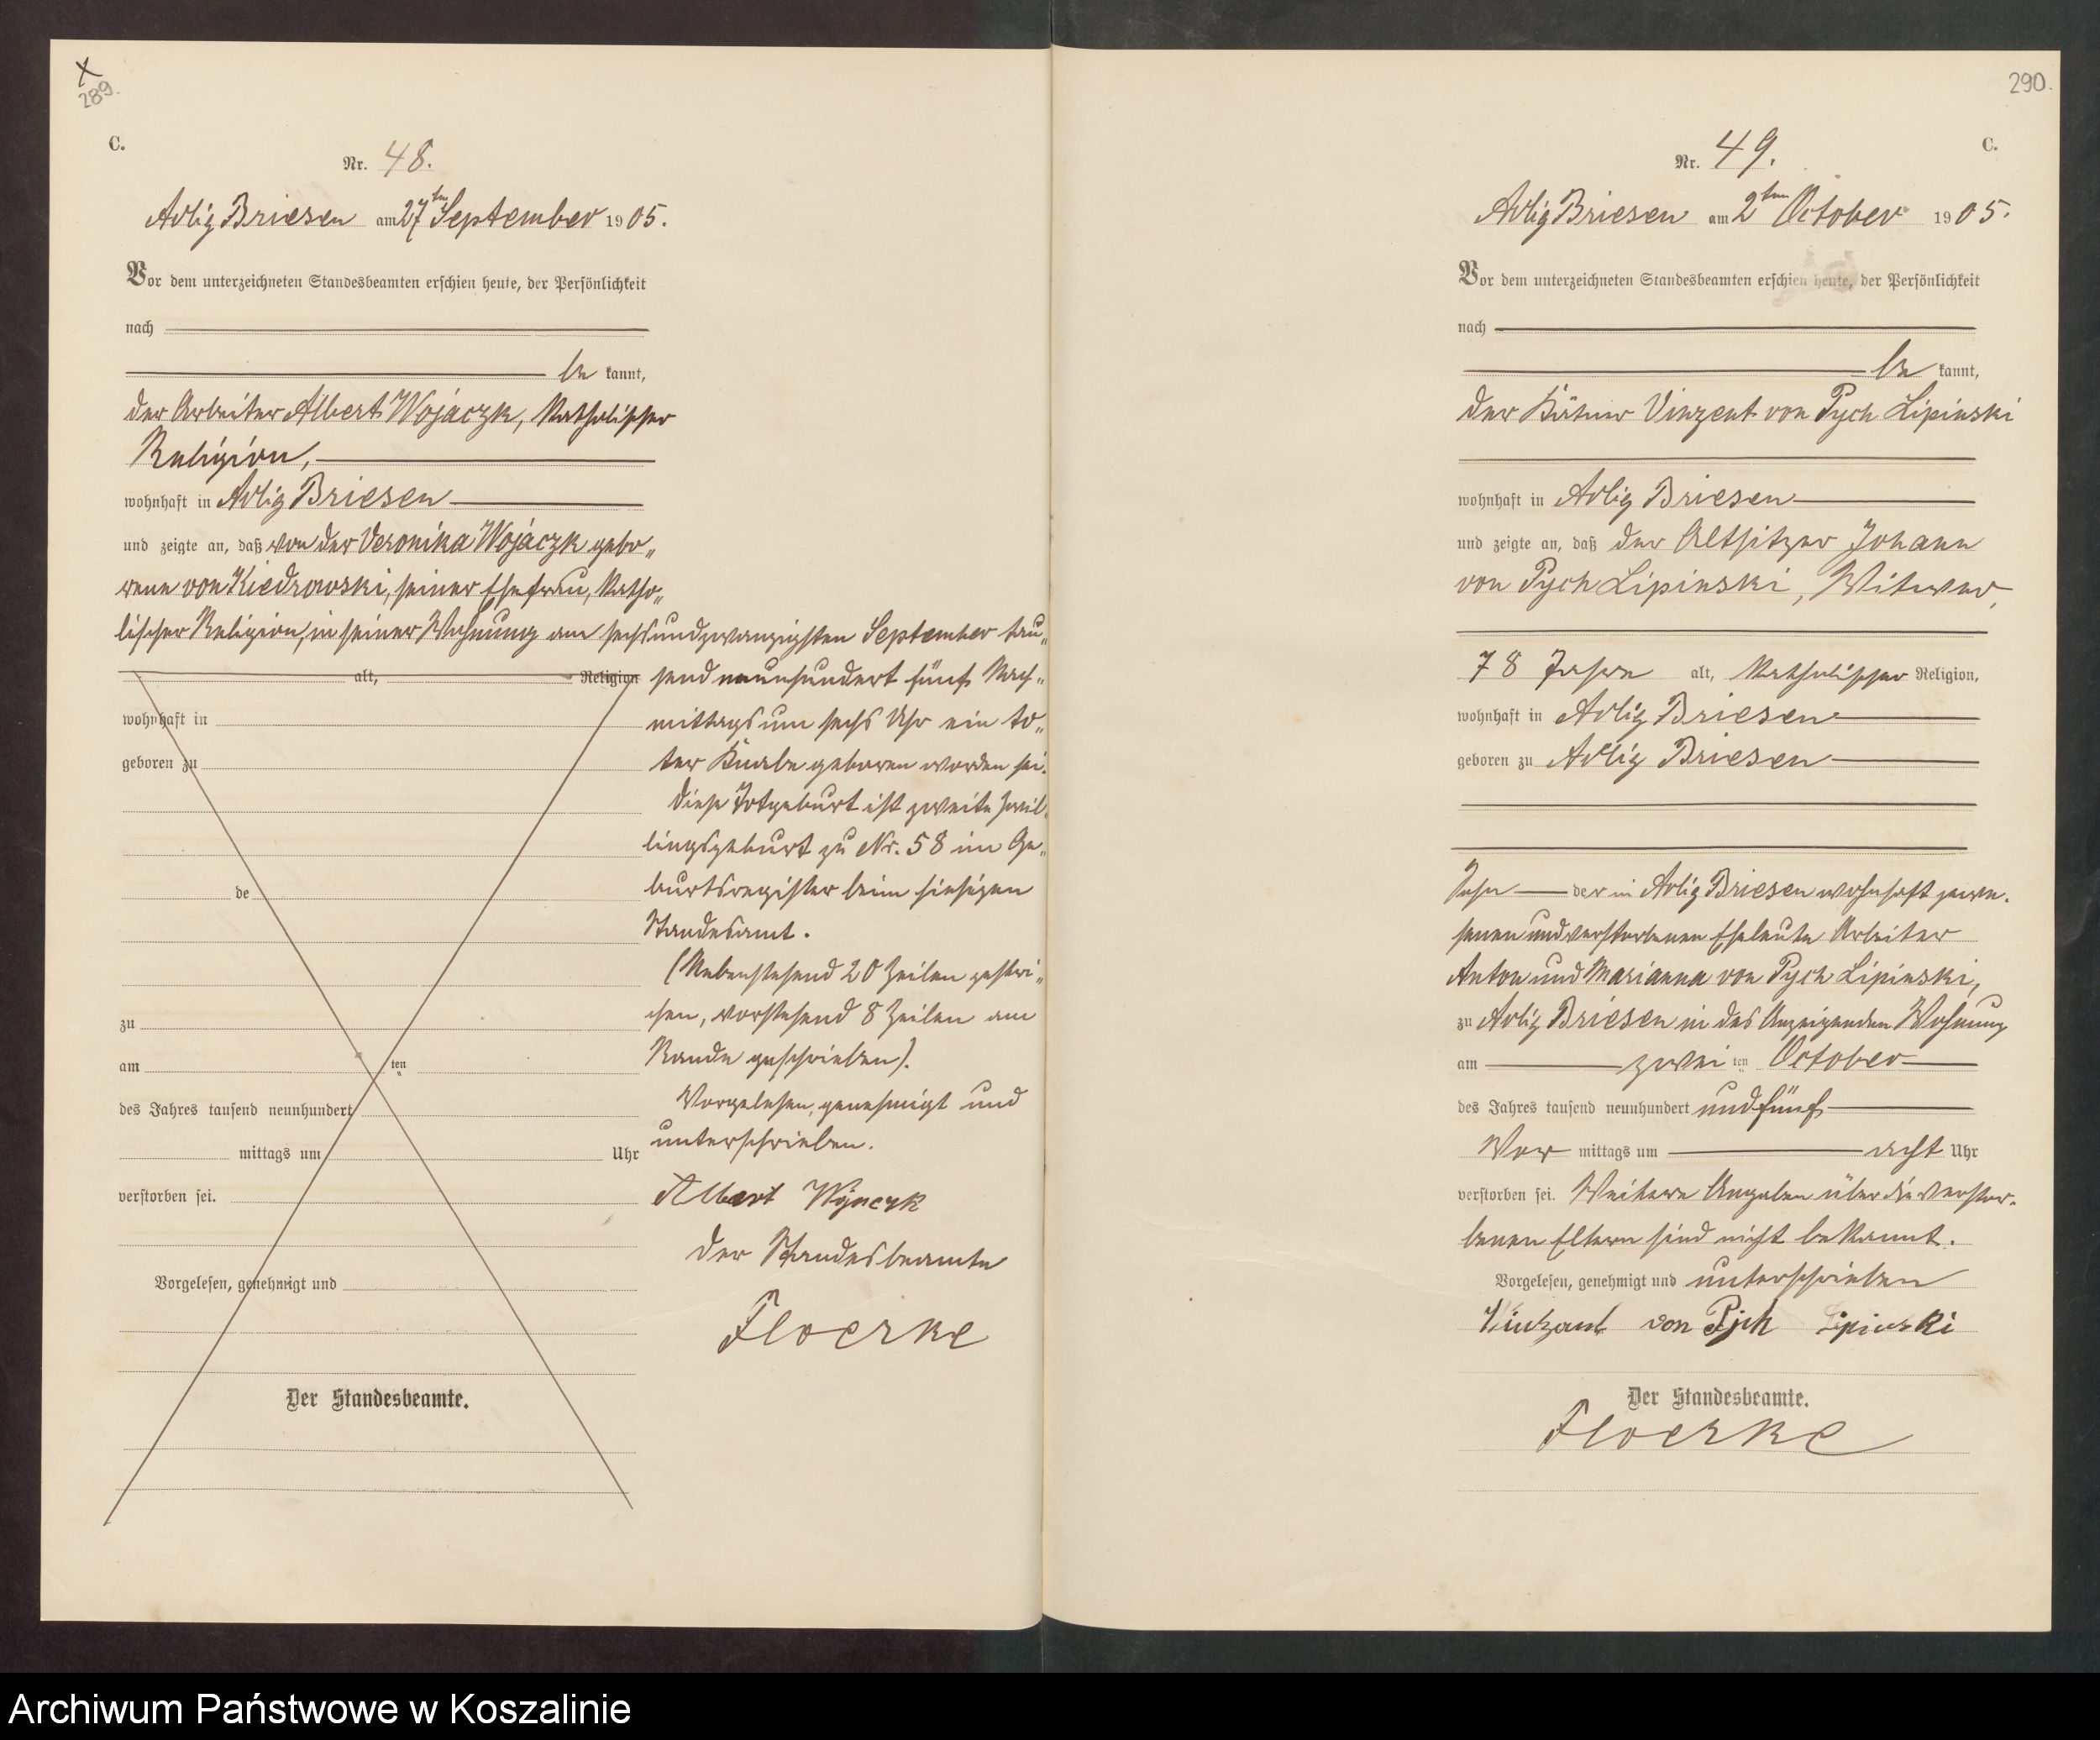 289.
C.
Nr. 48.
Adlig Briesen am 27ten September 1905.
Vor dem unterzeichneten Standesbeamten erschien heute, der Persönlichkeit
nach
be kannt,
der Arbeiter Albert Wojaczk, katholischer
Religion,
wohnhaft in Adlig Briesen
und zeigte an, daß von der Veronika Wojaczk gebo„
rene von Kiedrowski, seiner Ehefrau, katho„
lischer Religion, in seiner Wohnung am sechsundzwanzigsten September tau„
alt, Religion send neunhundert fünf Nach„
wohnhaft in mittags um sechs Uhr ein to„
geboren zu ter Knabe geboren worden sei.
Diese Totgeburt ist zweite Zwil„
lingsgeburt zu Nr. 58 im Ge„
de burtsregister beim hiesigen
Standesamt.
(Nebenstehend 20 Zeilen gestri„
zu chen, vorstehend 8 Zeilen am
am ten Rande geschrieben).
des Jahres tausend neunhundert Vorgelesen, genehmigt und
mittags um Uhr unterschrieben.
verstorben sei. Albert Wojaczk
Der Standesbeamte
Vorgelesen, genehmigt und
Floerke
Der Standesbeamte.
290.
C.
Nr. 49.
Adlig Briesen am 2ten October 1905.
Vor dem unterzeichneten Standesbeamten erschien heute, der Persönlichkeit
nach
be kannt,
der Kätner Vinzent von Pych Lipinski
wohnhaft in Adlig Briesen
und zeigte an, daß der Altsitzer Johann
von Pych Lipinski, Witwer,
78 Jahre alt, katholischer Religion,
wohnhaft in Adlig Briesen
geboren zu Adlig Briesen
Sohn der in Adlig Briesen wohnhaft gewe„
senen und verstorbenen Eheleute Arbeiter
Anton und Marianna von Pych Lipinski,
zu Adlig Briesen in des Anzeigenden Wohnung
am zwei ten October
des Jahres tausend neunhundert und fünf
Vor mittags um acht Uhr
verstorben sei. Weitere Angaben über die verstor„
benen Eltern sind nicht bekannt.
Vorgelesen, genehmigt und unterschrieben
Vinzant von Pych Lipinski
Der Standesbeamte.
Floerke
Archiwum Państwowe w Koszalinie